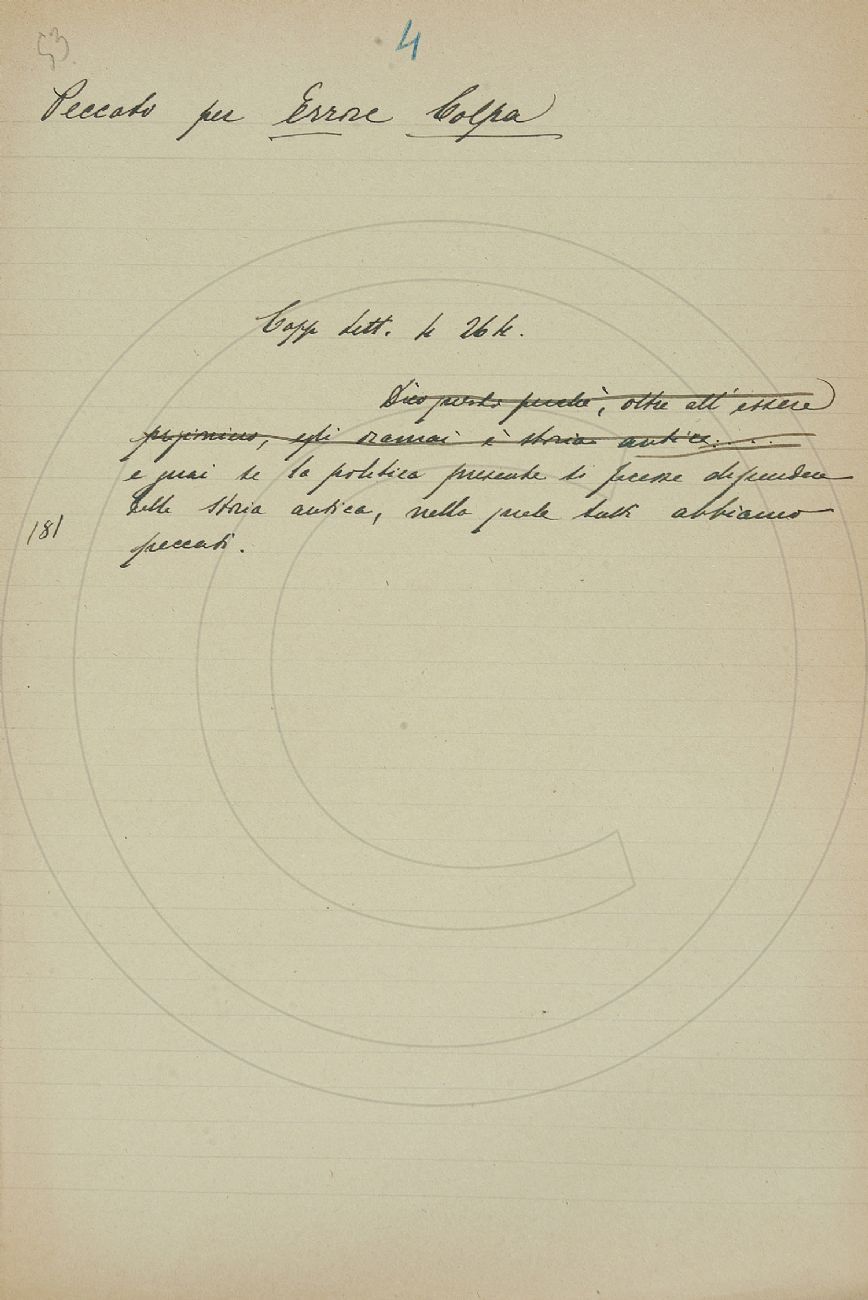 53
4
Peccato per Errore Colpa
Capp lett.
Dico questo perchè, oltre all'essere
egli oramai è storia antica....
e guai se la politica presente si facesse dipendere
dalla storia antica, nella quale tutti abbiamo
181
peccati.